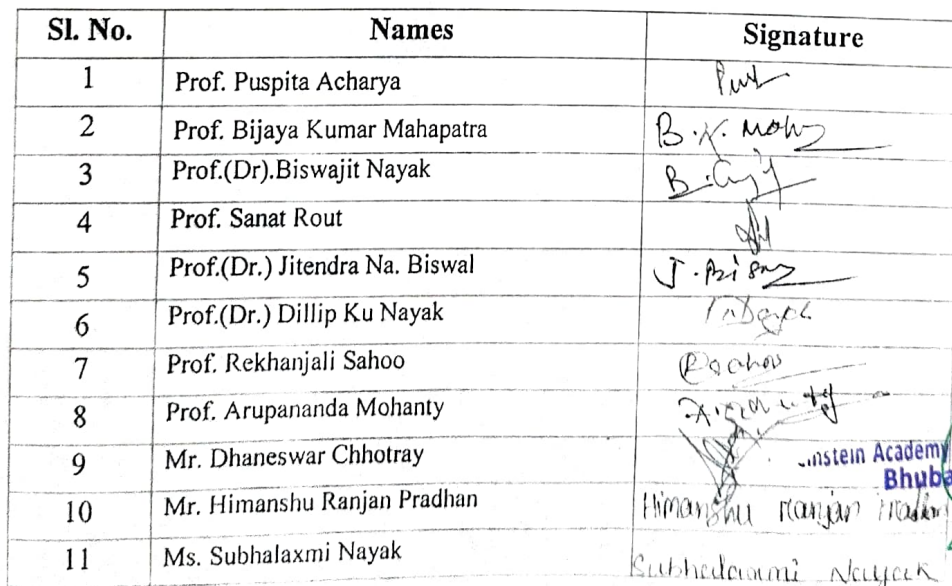 Sl. No. Names Signature
1 Prof. Puspita Acharya
2 Prof. Bijaya Kumar Mahapatra B.K.
3 Prof.(Dr).Biswajit Nayak
4 Prof. Sanat Rout
5 Prof.(Dr.) Jitendra Na. Biswal J.
6 Prof.(Dr.) Dillip Ku Nayak
7 Prof. Rekhanjali Sahoo
8 Prof. Arupananda Mohanty
9 Mr. Dhaneswar Chhotray
instein Academy
Bhuba
10 Mr. Himanshu Ranjan Pradhan Himanshu Ranjan Pradhan
11 Ms. Subhalaxmi Nayak Subhalaxmi Nayak